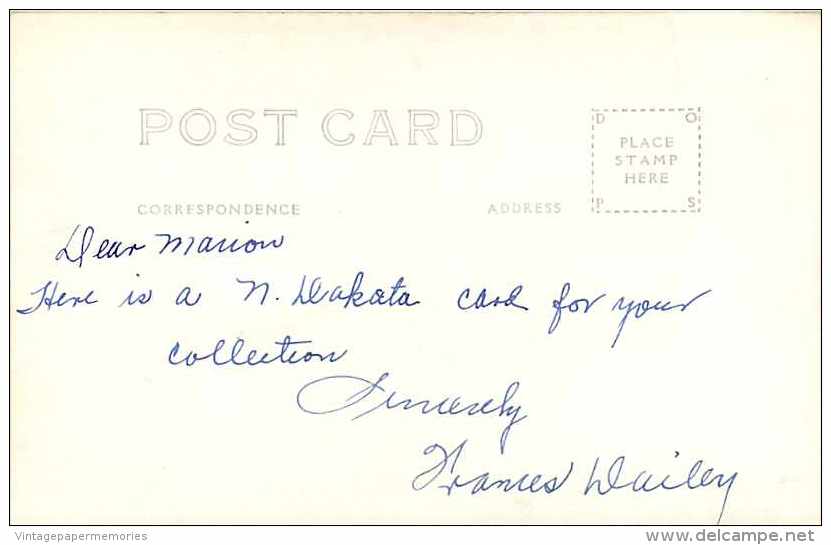 POST CARD
D O
PLACE
STAMP
HERE
P S
CORRESPONDENCE
ADDRESS
Dear Marion
Here is a N. Dakata card for your
collection
Sincerely
Frances Dailey
Vintagepapermemories
delcampe.net